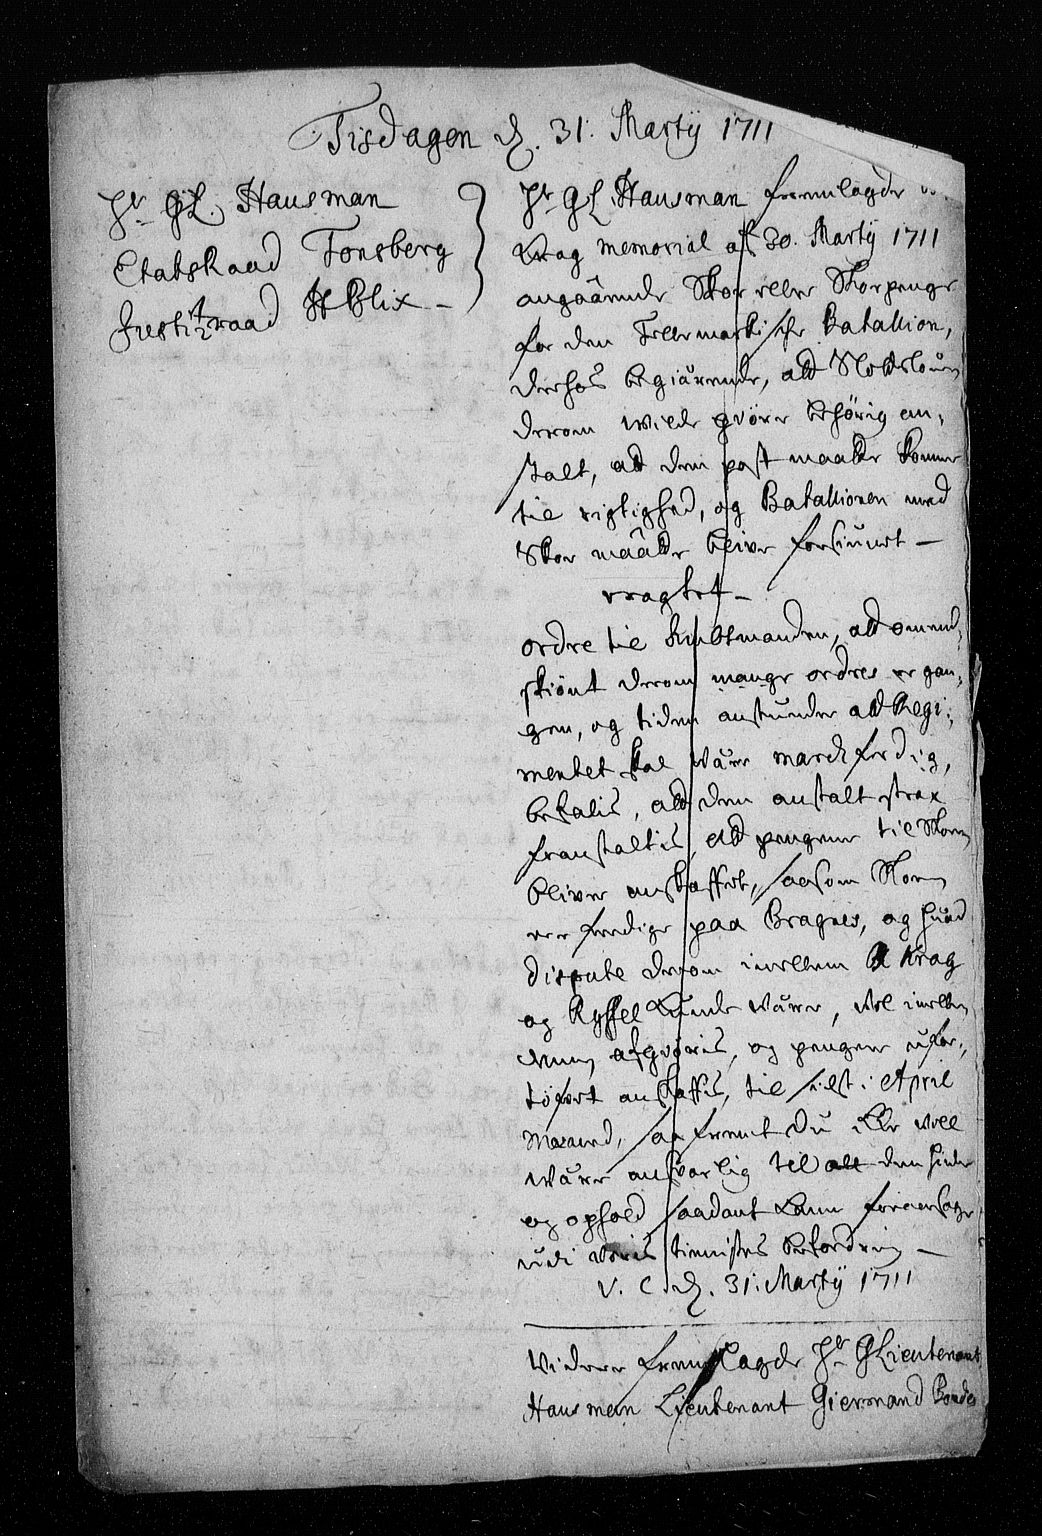 Tisdagen d. 31. Martij 1711
Hr. GL. Hausman
Etatsraad Tonsberg
Justitzraad Blix –
Hr. GL. Hausman fremlagde
Krag memorial af 30. Martij 1711
angaaende Skor eller Skorpenge
for den Tellemarkische Batallion,
derhos begiærende, att Slotsloven
derom wilde giöre behörig an-
stalt, att den post maatte komme
til rigtighed, og Batallionen med
Skor maatte blive forsiunet –
eragtet –
ordre til Ambtmanden, att omend-
skiönt derom mange ordres er gan-
gen, og tiden anstunder att Regi-
mentet skal være march ferdig,
befalis, att den anstalt strax
franstaltis, att pengene til Skoen
bliver anskaffet, saasom Skoen
ere ferdige paa Bragnes, og huad
dispute derom imellem Krag
og Ryssel kunde være, vel imellem
dem afgiöris, og pengene ufor-
töfvet anskaffis, til sidst i April
Maaned, saa fremt du icke vill
være ansvarlig til alt den hinder
og ophold saadant kunn foraarsage
udi voris tienistes befordring –
V. C. d. 31. Martij 1711
Widere fremlagde Hr. GLieutenant
Hausman Lieutenant Giermand Bondes